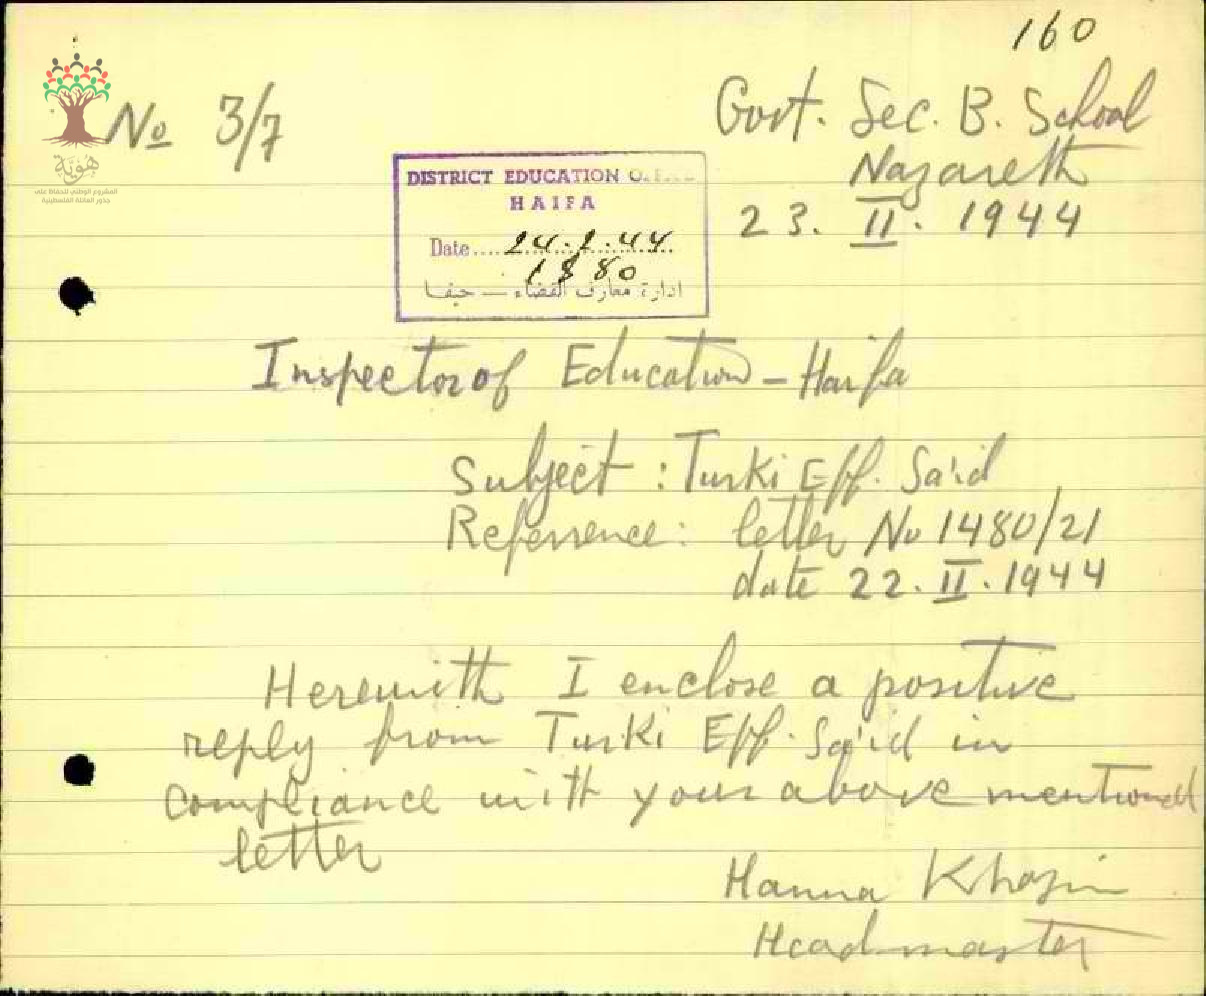 160
No 3/7
Govt. Sec. B. School
Nazareth
23. II. 1944
هوية
المشروع الوطني للحفاظ على
جذور العائلة الفلسطينية
DISTRICT EDUCATION
HAIFA
Date 24.2.44
1880
ادارة معارف القضاء — حيفا
Inspector of Education - Haifa
Subject : Turki Eff. Sa'id
Referrence: letter No 1480/21
date 22. II. 1944
Herewith I enclose a positive
reply from Turki Eff. Sa'id in
compliance with your above mentioned
letter
Hanna Khazin
Headmaster